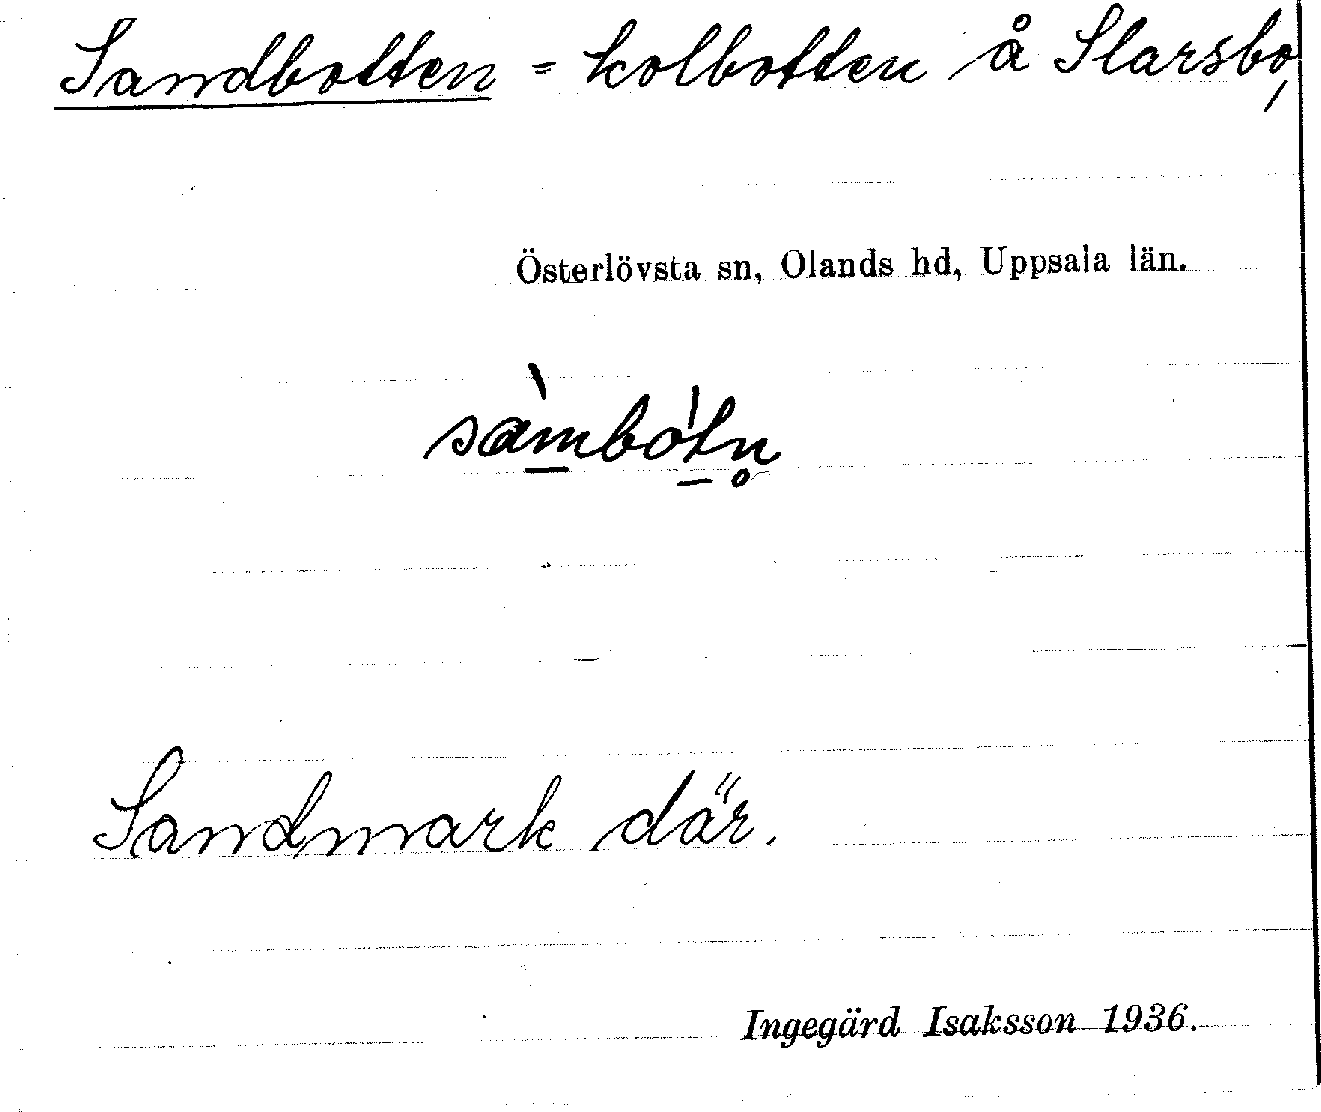 Sandbotten = kolbotten å Slarsbo,
Österlövsta sn, Olands hd, Uppsala län.
sàmbòtn̥
Sandmark där.
Ingegärd Isaksson 1936.